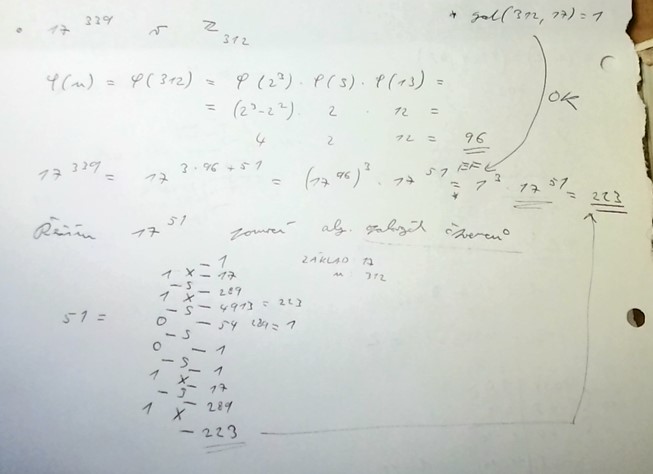 • 17^339 v Z_312 * gcd(312, 17) = 1
φ(n) = φ(312) = φ(2^3) · φ(3) · φ(13) =
= (2^3 - 2^2) · 2 · 12 =
4 2 12 = 96
OK
17^339 = 17^(3·96+51) = (17^96)^3 · 17^51 = 1^3 · 17^51 = 223
EFL
*
Řeším 17^51 pomocí alg. opakovaných čtverců
ZÁKLAD 17
n: 312
51 =
– 1
1 X – 17
– S – 289
1 X – 4913 = 223
– S – 54 289 = 1
0
– S – 1
0
– S – 1
1 X – 17
– S – 289
1 X
– 223